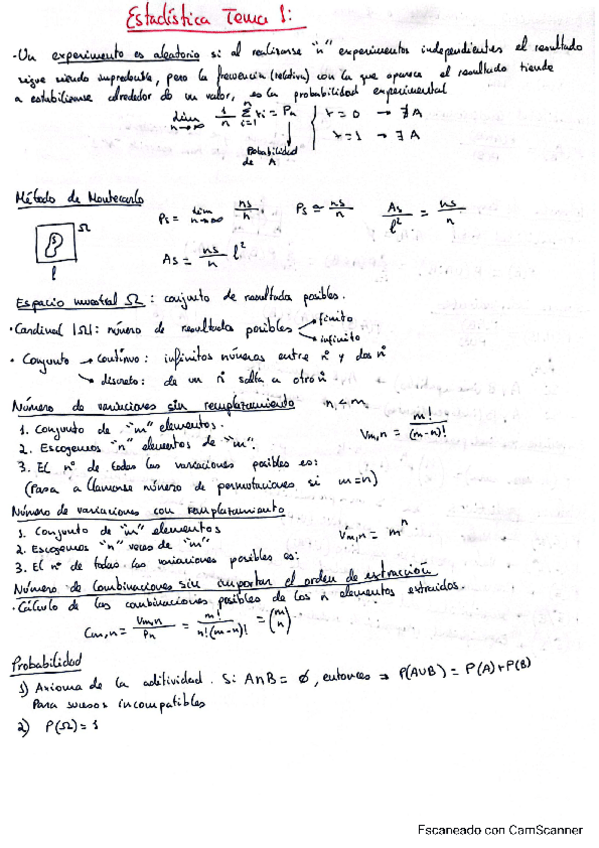 Estadística Tema 1:
·Un experimento es aleatorio si al realizarse "n" experimentos independientes el resultado
sigue siendo impredecible, pero la frecuencia (relativa) con la que aparece el resultado tiende
a estabilizarse alrededor de un valor, es la probabilidad experimental
lim n→∞ 1/n Σ i=1 n ri = Pn { r=0 → ∄A
r=1 → ∃A
Probabilidad
de A
Método de Montecarlo
Ps = lim n→∞ ns/n . Ps ≃ ns/n As/l² = ns/n
S Ω
As = ns/n l²
l
Espacio muestral Ω : conjunto de resultados posibles.
·Cardinal |Ω|: número de resultados posibles → finito
→ infinito
· Conjunto → continuo: infinitos números entre nº y dos nº
→ discreto: de un nº salta a otro nº.
Número de variaciones sin remplazamiento n < m
1. Conjunto de "m" elementos.
2. Escogemos "n" elementos de "m". Vm,n = m!/(m-n)!
3. El nº de todas las variaciones posibles es:
(Pasa a llamarse número de permutaciones si m=n)
Número de variaciones con remplazamiento
1. Conjunto de "m" elementos
2. Escogemos "n" veces de "m" V'm,n = mⁿ
3. El nº de todas las variaciones posibles es:
Número de Combinaciones sin importar el orden de extracción
·Cálculo de las combinaciones posibles de los n elementos extraidos.
Cm,n = Vm,n/Pn = m!/n!(m-n)! = (m n)
Probabilidad
1) Axioma de la aditividad. Si A∩B = ∅, entonces ⇒ P(A∪B) = P(A)+P(B)
Para sucesos incompatibles
2) P(Ω)=1
Escaneado con CamScanner